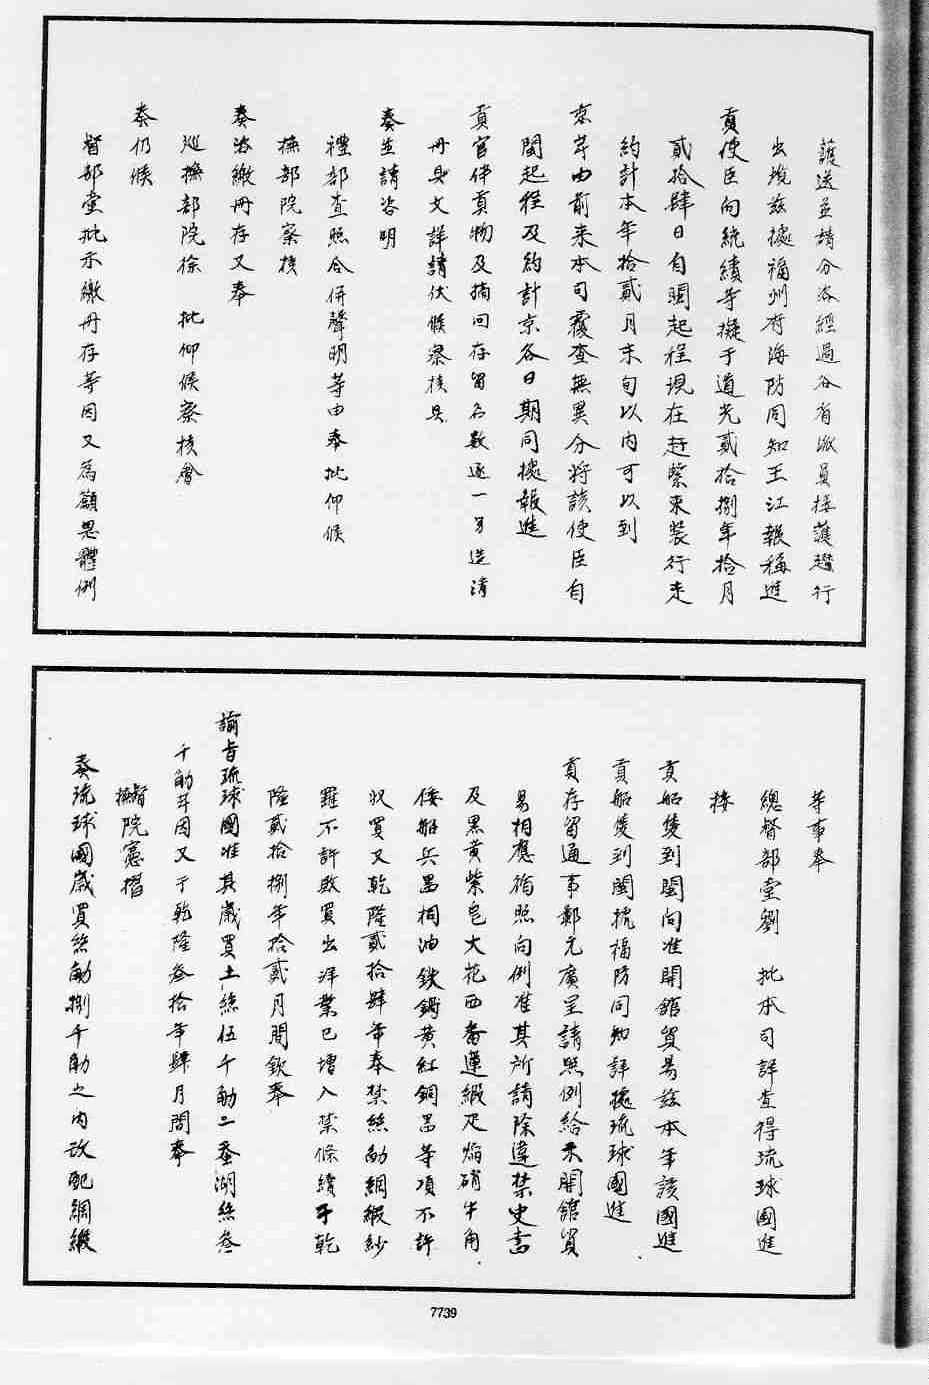 護送並請分咨經過各省派員接護遄行
出境茲據福州府海防同知王江報稱進
貢使臣向統績等擬于道光貳拾捌年拾月
貳拾肆日自閩起程現在赶緊束裝行走
約計本年拾貳月末旬以內可以到
京等由前來本司覆查無異分將該使臣自
閩起程及約計京各日期同據報進
貢官伴貢物及摘回存留名數逐一另造清
冊具文詳請伏候察核具
奏並請咨明
禮部查照合併聲明等由奉批仰候
撫部院察核
奏咨繳冊存又奉
巡撫部院徐 批仰候察核會
奏仍候
督部堂批示繳冊存等因又為籲恩體例
等事奉
總督部堂劉 批本司詳查得琉球國進
接
貢船隻到閩向准開館貿易茲本年該國進
貢船隻到閩㨿福防同知詳據琉球國進
貢存留通事鄭元廣呈請照例給示開館貿
易相應循照向例准其所請除違禁史書
及黑黃紫皂大花西番蓮緞疋焰硝牛角
倭船兵器桐油鉄鍋黃紅銅器等項不許
收買又乾隆貳拾肆年奉禁絲觔綢緞紗
羅不許敗買出洋業已增入禁條續于乾
隆貳拾捌年拾貳月間欽奉
諭旨琉球國准其歲買土絲伍千觔二蚕湖絲叁
千觔等因又于乾隆叁拾年肆月間奉
督撫院憲摺
奏琉球國歲買絲觔捌千觔之內改配綢緞
7739